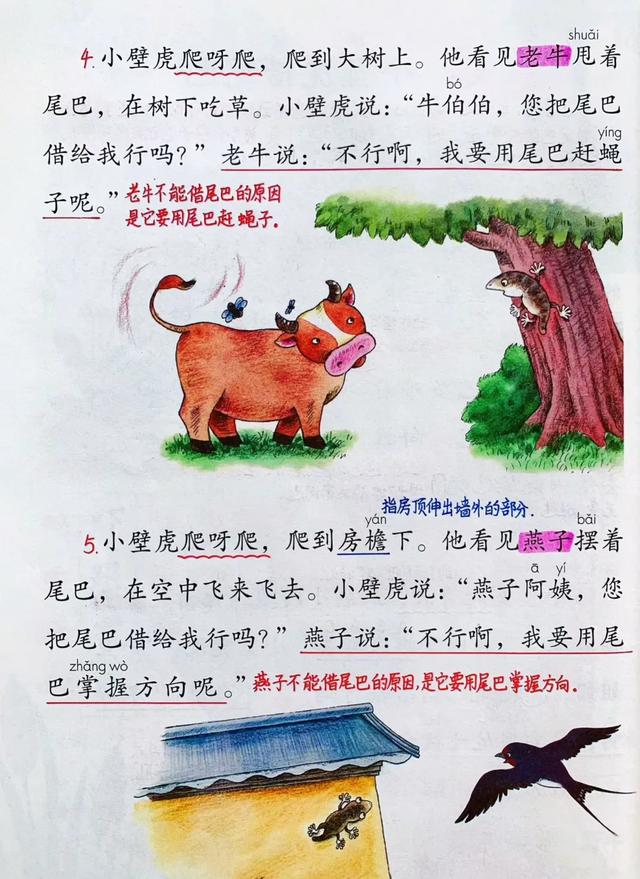 shuǎi
4.小壁虎爬呀爬，爬到大树上。他看见老牛甩着
bó
尾巴，在树下吃草。小壁虎说：“牛伯伯，您把尾巴
yíng
借给我行吗？”老牛说：“不行啊，我要用尾巴赶蝇
子呢。”
老牛不能借尾巴的原因
是它要用尾巴赶蝇子。
指房顶伸出墙外的部分.
yán bǎi
5.小壁虎爬呀爬，爬到房檐下。他看见燕子摆着
ā yí
尾巴，在空中飞来飞去。小壁虎说：“燕子阿姨，您
把尾巴借给我行吗？”燕子说：“不行啊，我要用尾
zhǎng wò
巴掌握方向呢。”
燕子不能借尾巴的原因,是它要用尾巴掌握方向.